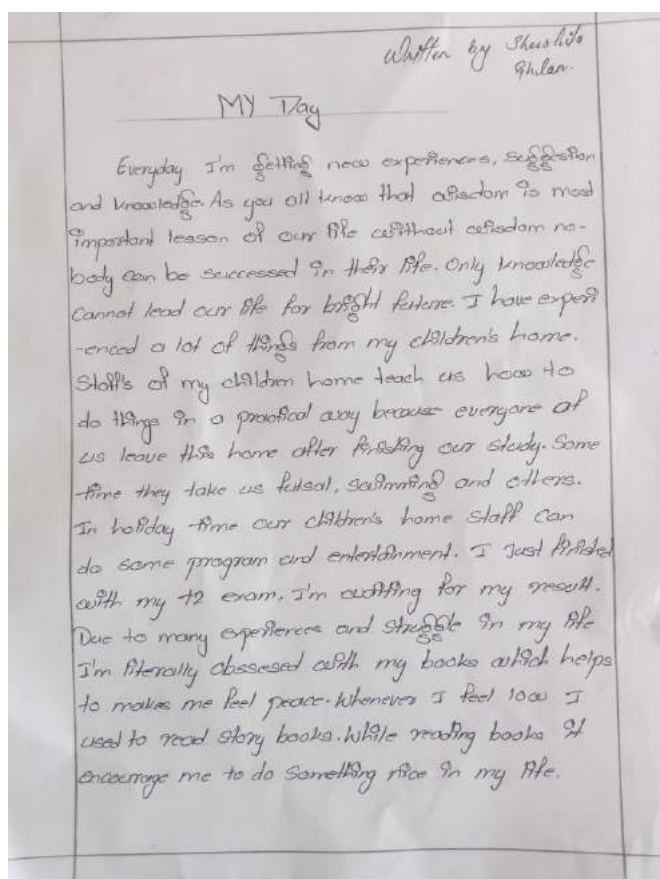 Written by Shershita
Ghilan.
MY Day
Everyday I'm getting new experiences, suggestion
and knowledge. As you all know that wisdom is most
important lesson of our life without wisdom no-
body can be successed in their life. Only knowledge
cannot lead our life for bright future. I have experi
-enced a lot of things from my children's home.
Staff's of my children home teach us how to
do things in a practical way because everyone of
us leave this home after finishing our study. Some
-time they take us futsal, swimming and others.
In holiday time our children's home staff can
do some program and entertainment. I Just finished
with my +2 exam, I'm waiting for my result.
Due to many experiences and struggle in my life
I'm literally obssesed with my books which helps
to makes me feel peace. Whenever I feel low I
used to read story books. While reading books it
encourage me to do something nice in my life.